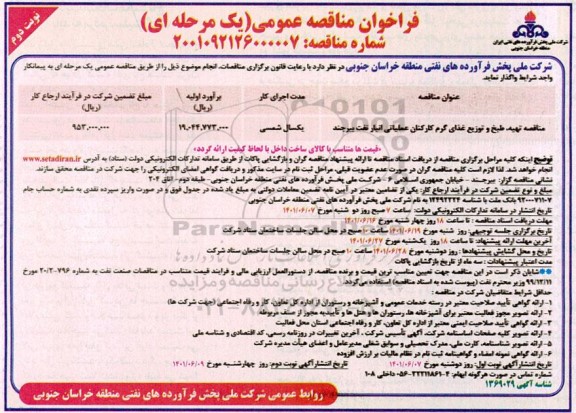 نوبت دوم
شرکت ملی پخش فرآورده های نفتی ایران
منطقه خراسان جنوبی
فراخوان مناقصه عمومی(یک مرحله ای)
شماره مناقصه: ۲۰۰۱۰۹۲۱۲۶۰۰۰۰۰۷
شرکت ملی پخش فرآورده های نفتی منطقه خراسان جنوبی در نظر دارد با رعایت قانون برگزاری مناقصات، انجام موضوع ذیل را از طریق مناقصه عمومی یک مرحله ای به پیمانکار
واجد شرایط واگذار نماید.
عنوان مناقصه
مدت اجرای کار
برآورد اولیه (ریال)
مبلغ تضمین شرکت در فرآیند ارجاع کار (ریال)
مناقصه تهیه، طبخ و توزیع غذای گرم کارکنان عملیاتی انبار نفت بیرجند
یکسال شمسی
۱۹،۰۴۴،۷۷۳،۰۰۰
۹۵۳،۰۰۰،۰۰۰
«قیمت ها متناسب با کالای ساخت داخل با لحاظ کیفیت ارائه گردد»
توضیح اینکه کلیه مراحل برگزاری مناقصه از دریافت اسناد مناقصه تا ارائه پیشنهاد مناقصه گران و بازگشایی پاکات از طریق سامانه تدارکات الکترونیکی دولت (ستاد) به آدرس www.setadiran.ir
انجام خواهد شد. لذا لازم است کلیه مناقصه گران در صورت عدم عضویت قبلی، مراحل ثبت نام در سایت مذکور و دریافت گواهی امضای الکترونیکی را جهت شرکت در مناقصه محقق سازند.
نشانی مناقصه گزار: بیرجند - خیابان جمهوری اسلامی ۶ - شرکت ملی پخش فرآورده های نفتی منطقه خراسان جنوبی - طبقه دوم - اتاق ۲۰۴
مبلغ و نوع تضمین شرکت در فرآیند ارجاع کار: یکی از تضامین معتبر در آیین نامه تضمین معاملات دولتی به مبلغ یاد شده در جدول فوق و در صورت واریز سپرده نقدی به شماره حساب جام
به نام شرکت ملی پخش فرآورده های نفتی منطقه خراسان جنوبی.
تاریخ انتشار در سامانه تدارکات الکترونیکی دولت: ساعت ۷ صبح روز دو شنبه مورخ ۱۴۰۱/۰۶/۰۷
مهلت دریافت اسناد مناقصه: تا ساعت ۱۸ روز چهار شنبه مورخ ۱۴۰۱/۰۶/۱۶
تاریخ برگزاری جلسه توجیهی: روز شنبه مورخ ۱۴۰۱/۰۶/۱۹ ساعت صبح در محل سالن جلسات ساختمان ستاد شرکت
آخرین مهلت ارائه پیشنهادات: تا ساعت ۱۸ روز یکشنبه مورخ ۱۴۰۱/۰۶/۲۷
تاریخ و محل گشایش پیشنهادها: روز دوشنبه مورخ ۱۴۰۱/۰۶/۲۸ ساعت ۱۰ صبح در محل سالن جلسات ساختمان ستاد شرکت
مدت اعتبار پیشنهادات: سه ماه از تاریخ بازگشایی پاکات
شایان ذکر است در این مناقصه جهت تعیین مناسب ترین قیمت و برنده مناقصه، از دستورالعمل ارزیابی مالی و فرایند قیمت متناسب در مناقصات صنعت نفت به شماره ۷۹۶-۲۰/۲ مورخ
۹۹/۱۲/۱۱ وزیر محترم نفت (پیوست شده به اسناد مناقصه) استفاده می گردد.
حداقل شرایط متقاضیان شرکت در مناقصه:
۱- ارائه گواهی تأیید صلاحیت معتبر در رسته خدمات عمومی و آشپزخانه و رستوران از اداره کل تعاون، کار و رفاه اجتماعی (جهت شرکت ها)
۲- ارائه تصویر مجوز فعالیت معتبر برای آشپزخانه ها، رستوران ها و هتل ها و تأییدیه مجوز از صنف مربوطه
۳- ارائه گواهی تأیید صلاحیت ایمنی معتبر از اداره کل تعاون، کار و رفاه اجتماعی استان محل فعالیت
۴- ارائه تصویر کلیه صفحات اساسنامه شرکت، آگهی تأسیس شرکت، آخرین تغییرات در روزنامه رسمی، کد اقتصادی و شناسه ملی
۵- ارائه تصویر شناسنامه، کارت ملی، مدرک تحصیلی و سوابق شغلی مدیرعامل و اعضای هیأت مدیره شرکت
۶- ارائه گواهی نمونه امضاء و گواهینامه ثبت نام در نظام مالیات بر ارزش افزوده
تاریخ انتشار آگهی نوبت اول: روز دوشنبه مورخ ۱۴۰۱/۰۶/۰۷
تاریخ انتشار آگهی نوبت دوم: روز چهارشنبه مورخ ۱۴۰۱/۰۶/۰۹
شماره تماس در صورت هرگونه ابهام: ۴-۳۲۲۱۱۸۶۱-۰۵۶ داخلی ۱۰۸
شناسه آگهی ۱۳۶۹۰۲۹
روابط عمومی شرکت ملی پخش فرآورده های نفتی منطقه خراسان جنوبی